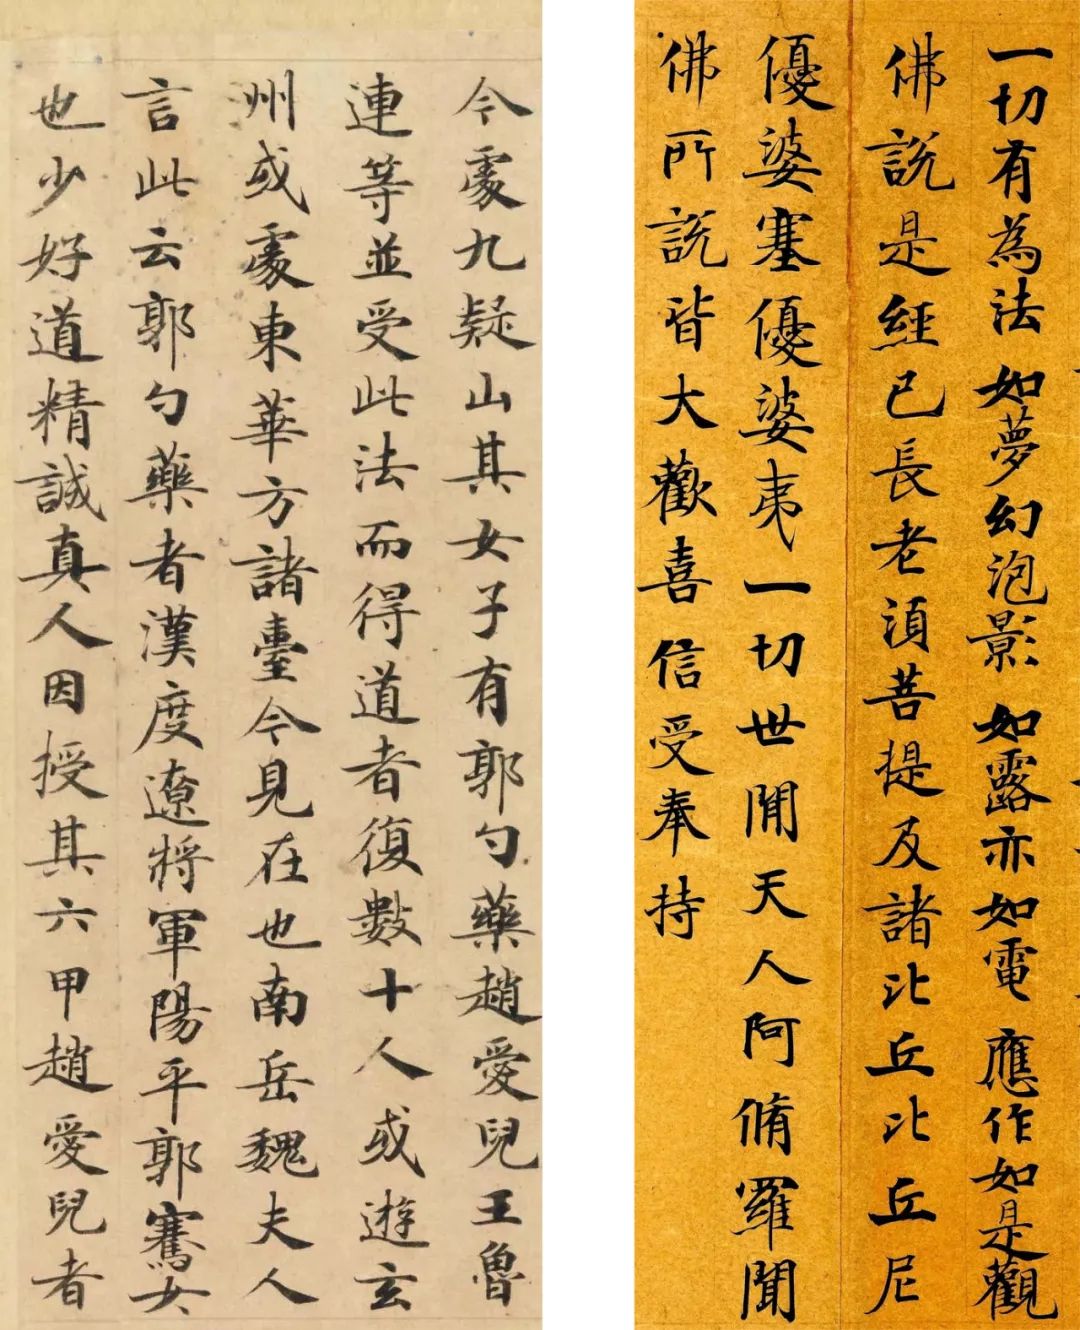 今處九疑山其女子有郭勺藥趙愛兒王魯
連等並受此法而得道者復數十人或遊玄
州或處東華方諸臺今見在也南岳魏夫人
言此云郭勺藥者漢度遼將軍陽平郭騫女
也少好道精誠真人因授其六甲趙愛兒者
一切有為法 如夢幻泡影 如露亦如電 應作如是觀
佛說是經已長老須菩提及諸比丘比丘尼
優婆塞優婆夷一切世間天人阿脩羅聞
佛所說皆大歡喜信受奉持